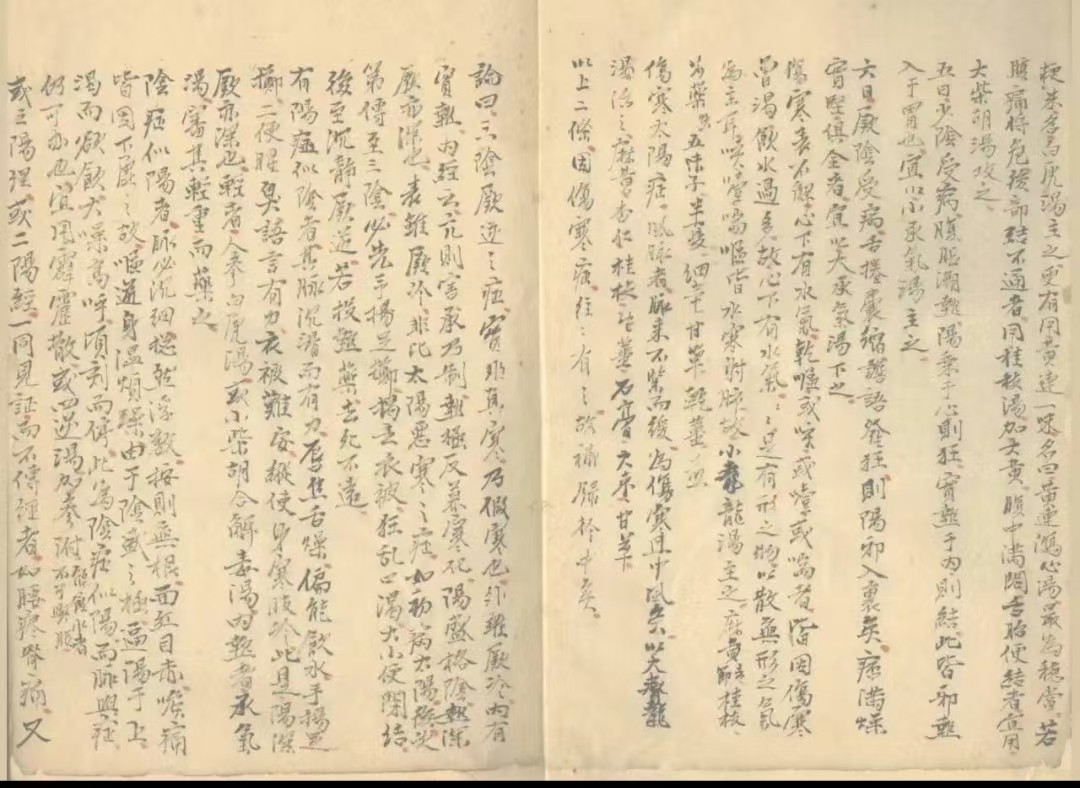 粳米名白虎湯主之更有用黃連一味名曰黃連瀉心湯最為穩當若
腹痛將危後部結不通者用桂枝湯加大黃腹中滿悶舌胎便結者宜用
大柴胡湯攻之
五曰少陰受病腹脹潮熱陽乗于心則狂實熱于內則結此皆邪熱
入于胃也宜以小承氣湯主之
六曰厥陰受病舌捲囊縮譫語發狂則陽邪入裏矣痞滿燥
實堅俱全者宜以大承氣湯下之
傷寒表不解心下有水氣乾嘔或咳或噎或喘者皆因傷寒
曾渴飲水過多故心下有水氣々是有形之物以散無形之氣
為主耳咳喘嘔皆水寒射肺故小青龍湯主之麻黃去節桂枝
芍藥五味子半夏細辛甘草乾薑
傷寒太陽症風脉者脉来不緊而緩為傷寒且中風矣以大青龍
湯治之麻黃杏仁桂枝薑石膏大棗甘草
以上二條因傷寒症往々有之故補錄於中矣
論曰三陰厥逆之症實非真寒乃假寒也外雖厥冷內有
實熱內經云亢則害承乃制熱極反兼寒化陽盛格陰熱深
厥亦深也表雖厥冷非比太陽惡寒之症如初病太陽後變
第傳至三陰必先手揚足擲揭去衣被狂乱口渴大小便閉結
後至沉静厥逆若投熱藥去死不遠
有陽症似陰者其脉沉滑而有力唇焦舌燥偏能飲水手揚足
擲二便腥臭語言有力衣被難安縱使身寒肢冷此是陽深
厥亦深也輕者人参白虎湯或小柴胡合解毒湯內熱者承氣
湯審其輕重而藥之
陰症似陽者脉必沉細總然浮数按則無根面紅目赤喉痛
皆因下虚之故嘔逆身温煩躁由于陰盛之極逼陽于上
渴而欲飲大噪高呼頃刻而停此為陰症似陽而脉與症
仍可办也宜用霹靂散或四逆湯加参附能飲水者不可與服
或三陽理或二陽經一同見証而不傳經者如腰疼脊痛又